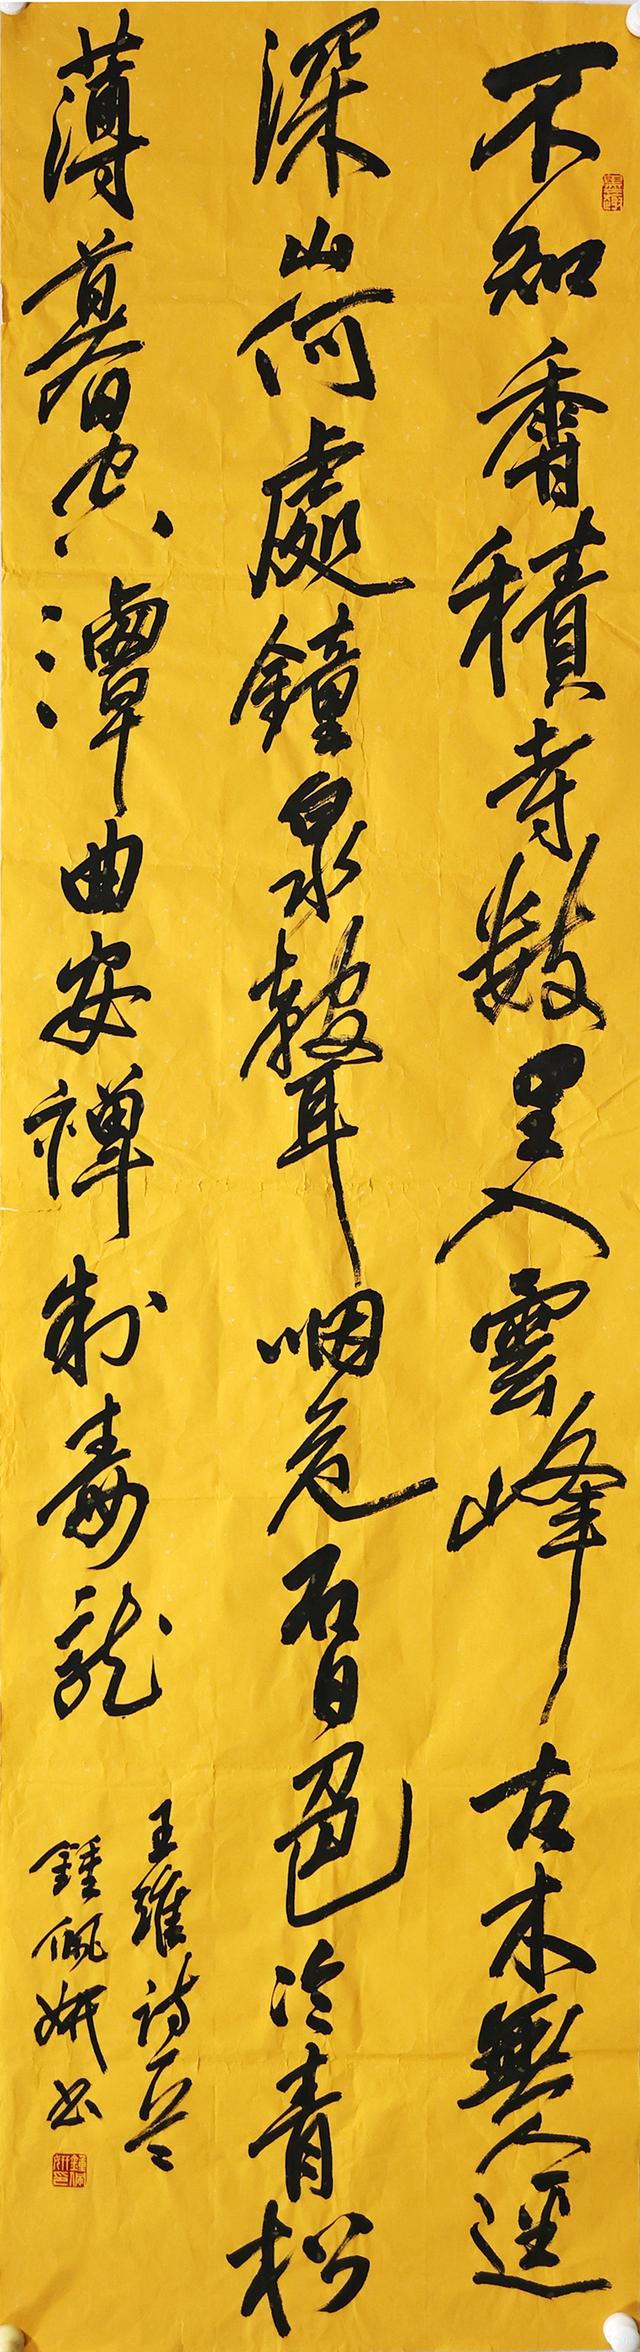 不知香積寺數里入雲峰古木無人逕
深山何處鐘泉聲咽危石日色冷青松
薄暮空潭曲安禪制毒龍
王維詩一首
鍾佩妍书